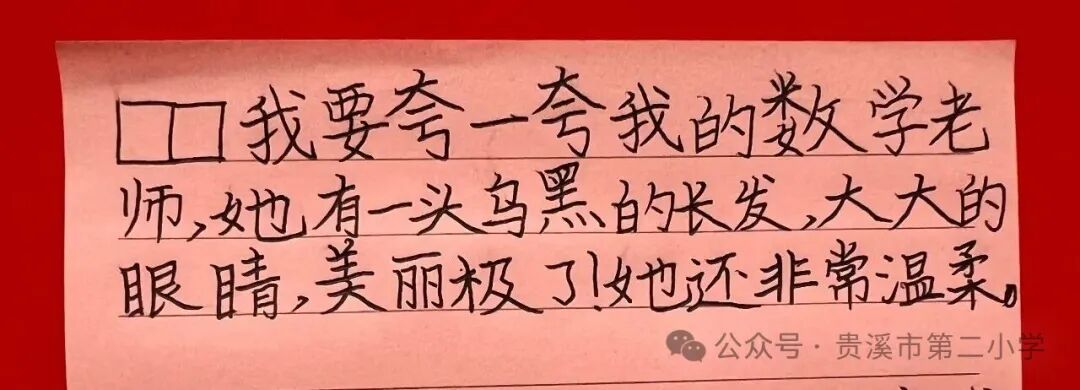 □□我要夸一夸我的数学老
师,她有一头乌黑的长发,大大的
眼睛,美丽极了!她还非常温柔。
公众号·贵溪市第二小学